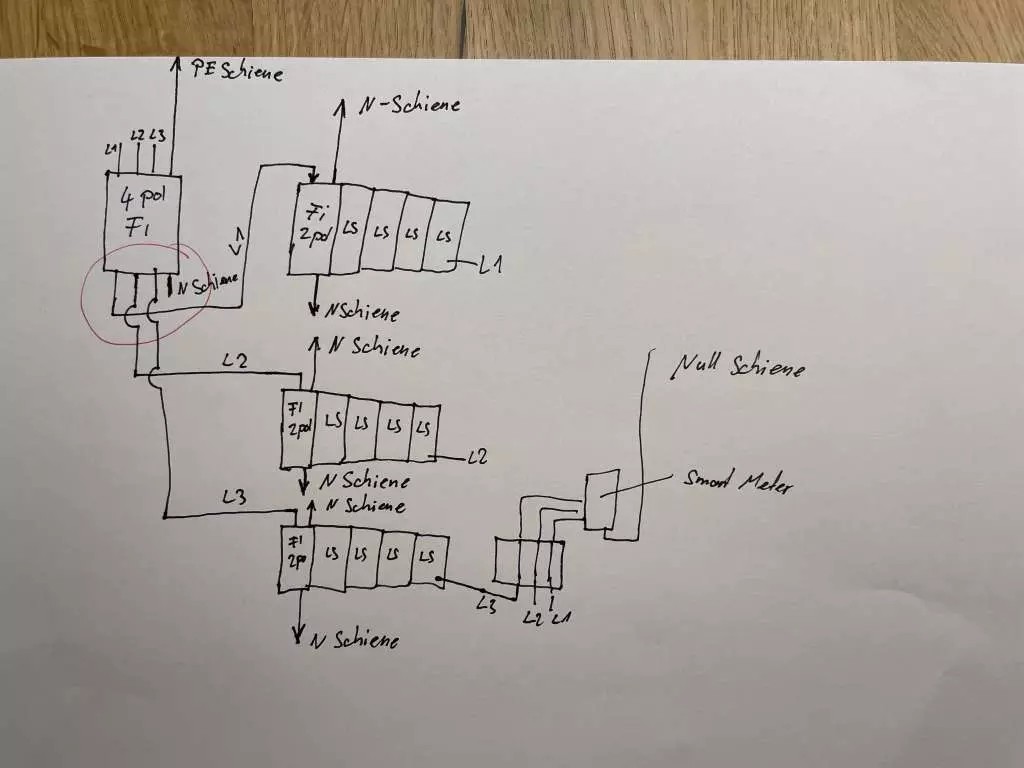 PE Schiene
N-Schiene
L1 L2 L3
4 pol
Fi
Fi
2pol
LS
LS
LS
LS
L1
N Schiene
N Schiene
N Schiene
L2
FI
2pol
LS
LS
LS
LS
L2
N Schiene
N Schiene
L3
FI
2pol
LS
LS
LS
LS
N Schiene
Null Schiene
Smart Meter
L3
L2
L1